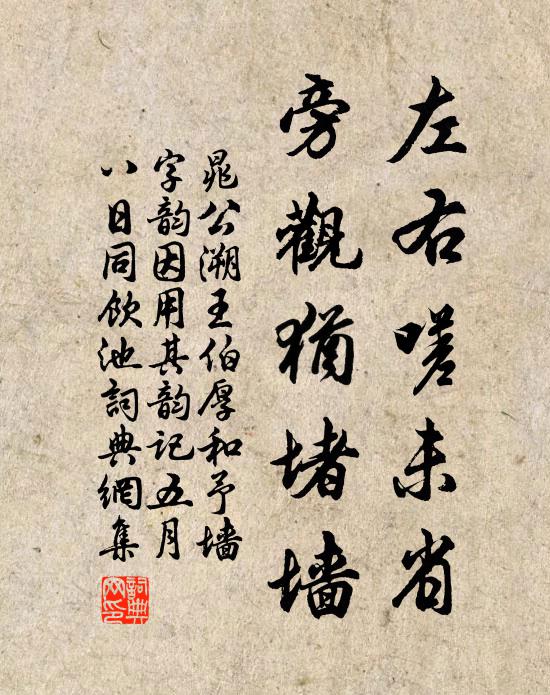 左右嗟未省
旁觀猶堵墻
晁公溯王伯厚和予墻
字韵因用其韵記五月
八日同飲池詞典網集
詞典网印